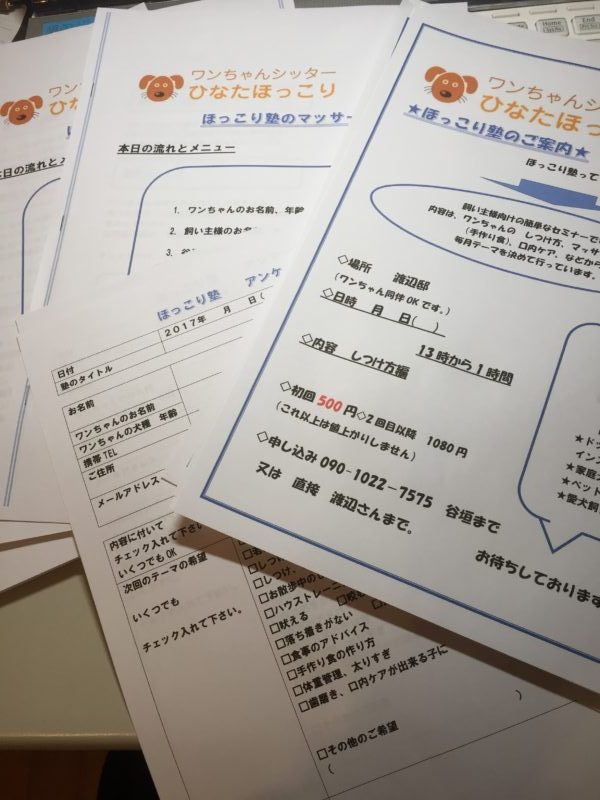 ワンちゃんシッター
ひなたほっこり
ほっこり塾のマッサー
本日の流れとメニュー
1. ワンちゃんのお名前、年齢
2. 飼い主様のお名
3.
ワンちゃんシ
ひなたほっ
★ほっこり塾のご案内★
ほっこり塾って
飼い主様向けの簡単なセミナーで
内容は、ワンちゃんの しつけ方、マッサ
(手作り食)、口内ケア、などから
毎月テーマを決めて行っています。
◇場所 渡辺邸
(ワンちゃん同伴OKです。)
◇日時 月 日( )
13時から1時間
◇内容 しつけ方編
◇初回500円◇2回目以降 1080円
(これ以上は値上がりしません)
◇申し込み090-1022-7575 谷垣まで
又は 直接 渡辺さんまで。
お待ちしております
★ドッ
イン
★家庭
★ペット
★愛犬飼
ワンちゃ
ひなた
本日の流れとメ
ほっこり塾 アンケ
2017年 月 日(
日付
塾のタイトル
お名前
ワンちゃんのお名前
ワンちゃんの犬種 年齢
携帯TEL
ご住所
メールアドレス
内容に付いて
チェック入れて下さい
いくつでもOK
次回のテーマの希望
いくつでも
チェック入れて下さい。
□しつけ、
□お散歩中のし
□ハウストレーニ
□吠える □咬
□落ち着きがない
□食事のアドバイス
□手作り食の作り方
□体重管理、太りすぎ
□歯磨き、口内ケアが出来る子に
□その他のご希望
( )